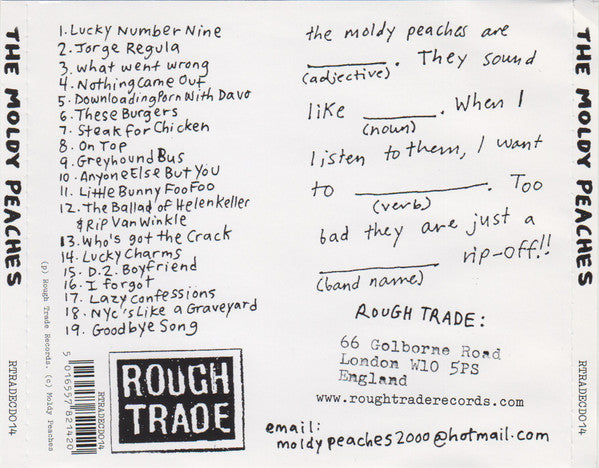 THE MOLDY PEACHES
RTRADECD014
1. Lucky Number Nine
2. Jorge Regula
3. what went wrong
4. Nothing Came Out
5. Downloading Porn With Davo
6. These Burgers
7. Steak for Chicken
8. On Top
9. Greyhound Bus
10. Anyone Else But You
11. Little Bunny Foo Foo
12. The Ballad of Helen Keller
& Rip Van Winkle
13. Who's got the Crack
14. Lucky Charms
15. D.2. Boyfriend
16. I forgot
17. Lazy Confessions
18. NYC's Like a Graveyard
19. Goodbye Song
(p) Rough Trade Records. (c) Moldy Peaches
5 016557 821420
RTRADECD014
ROUGH
TRADE
the moldy peaches are
________. They sound
(adjective)
like ______. When I
(noun)
listen to them, I want
to ___________. Too
(verb)
bad they are just a
__________ rip-off!!
(band name)
ROUGH TRADE:
66 Golborne Road
London W10 5PS
England
www.roughtraderecords.com
email:
moldypeaches2000@hotmail.com
THE MOLDY PEACHES
RTRADECD014